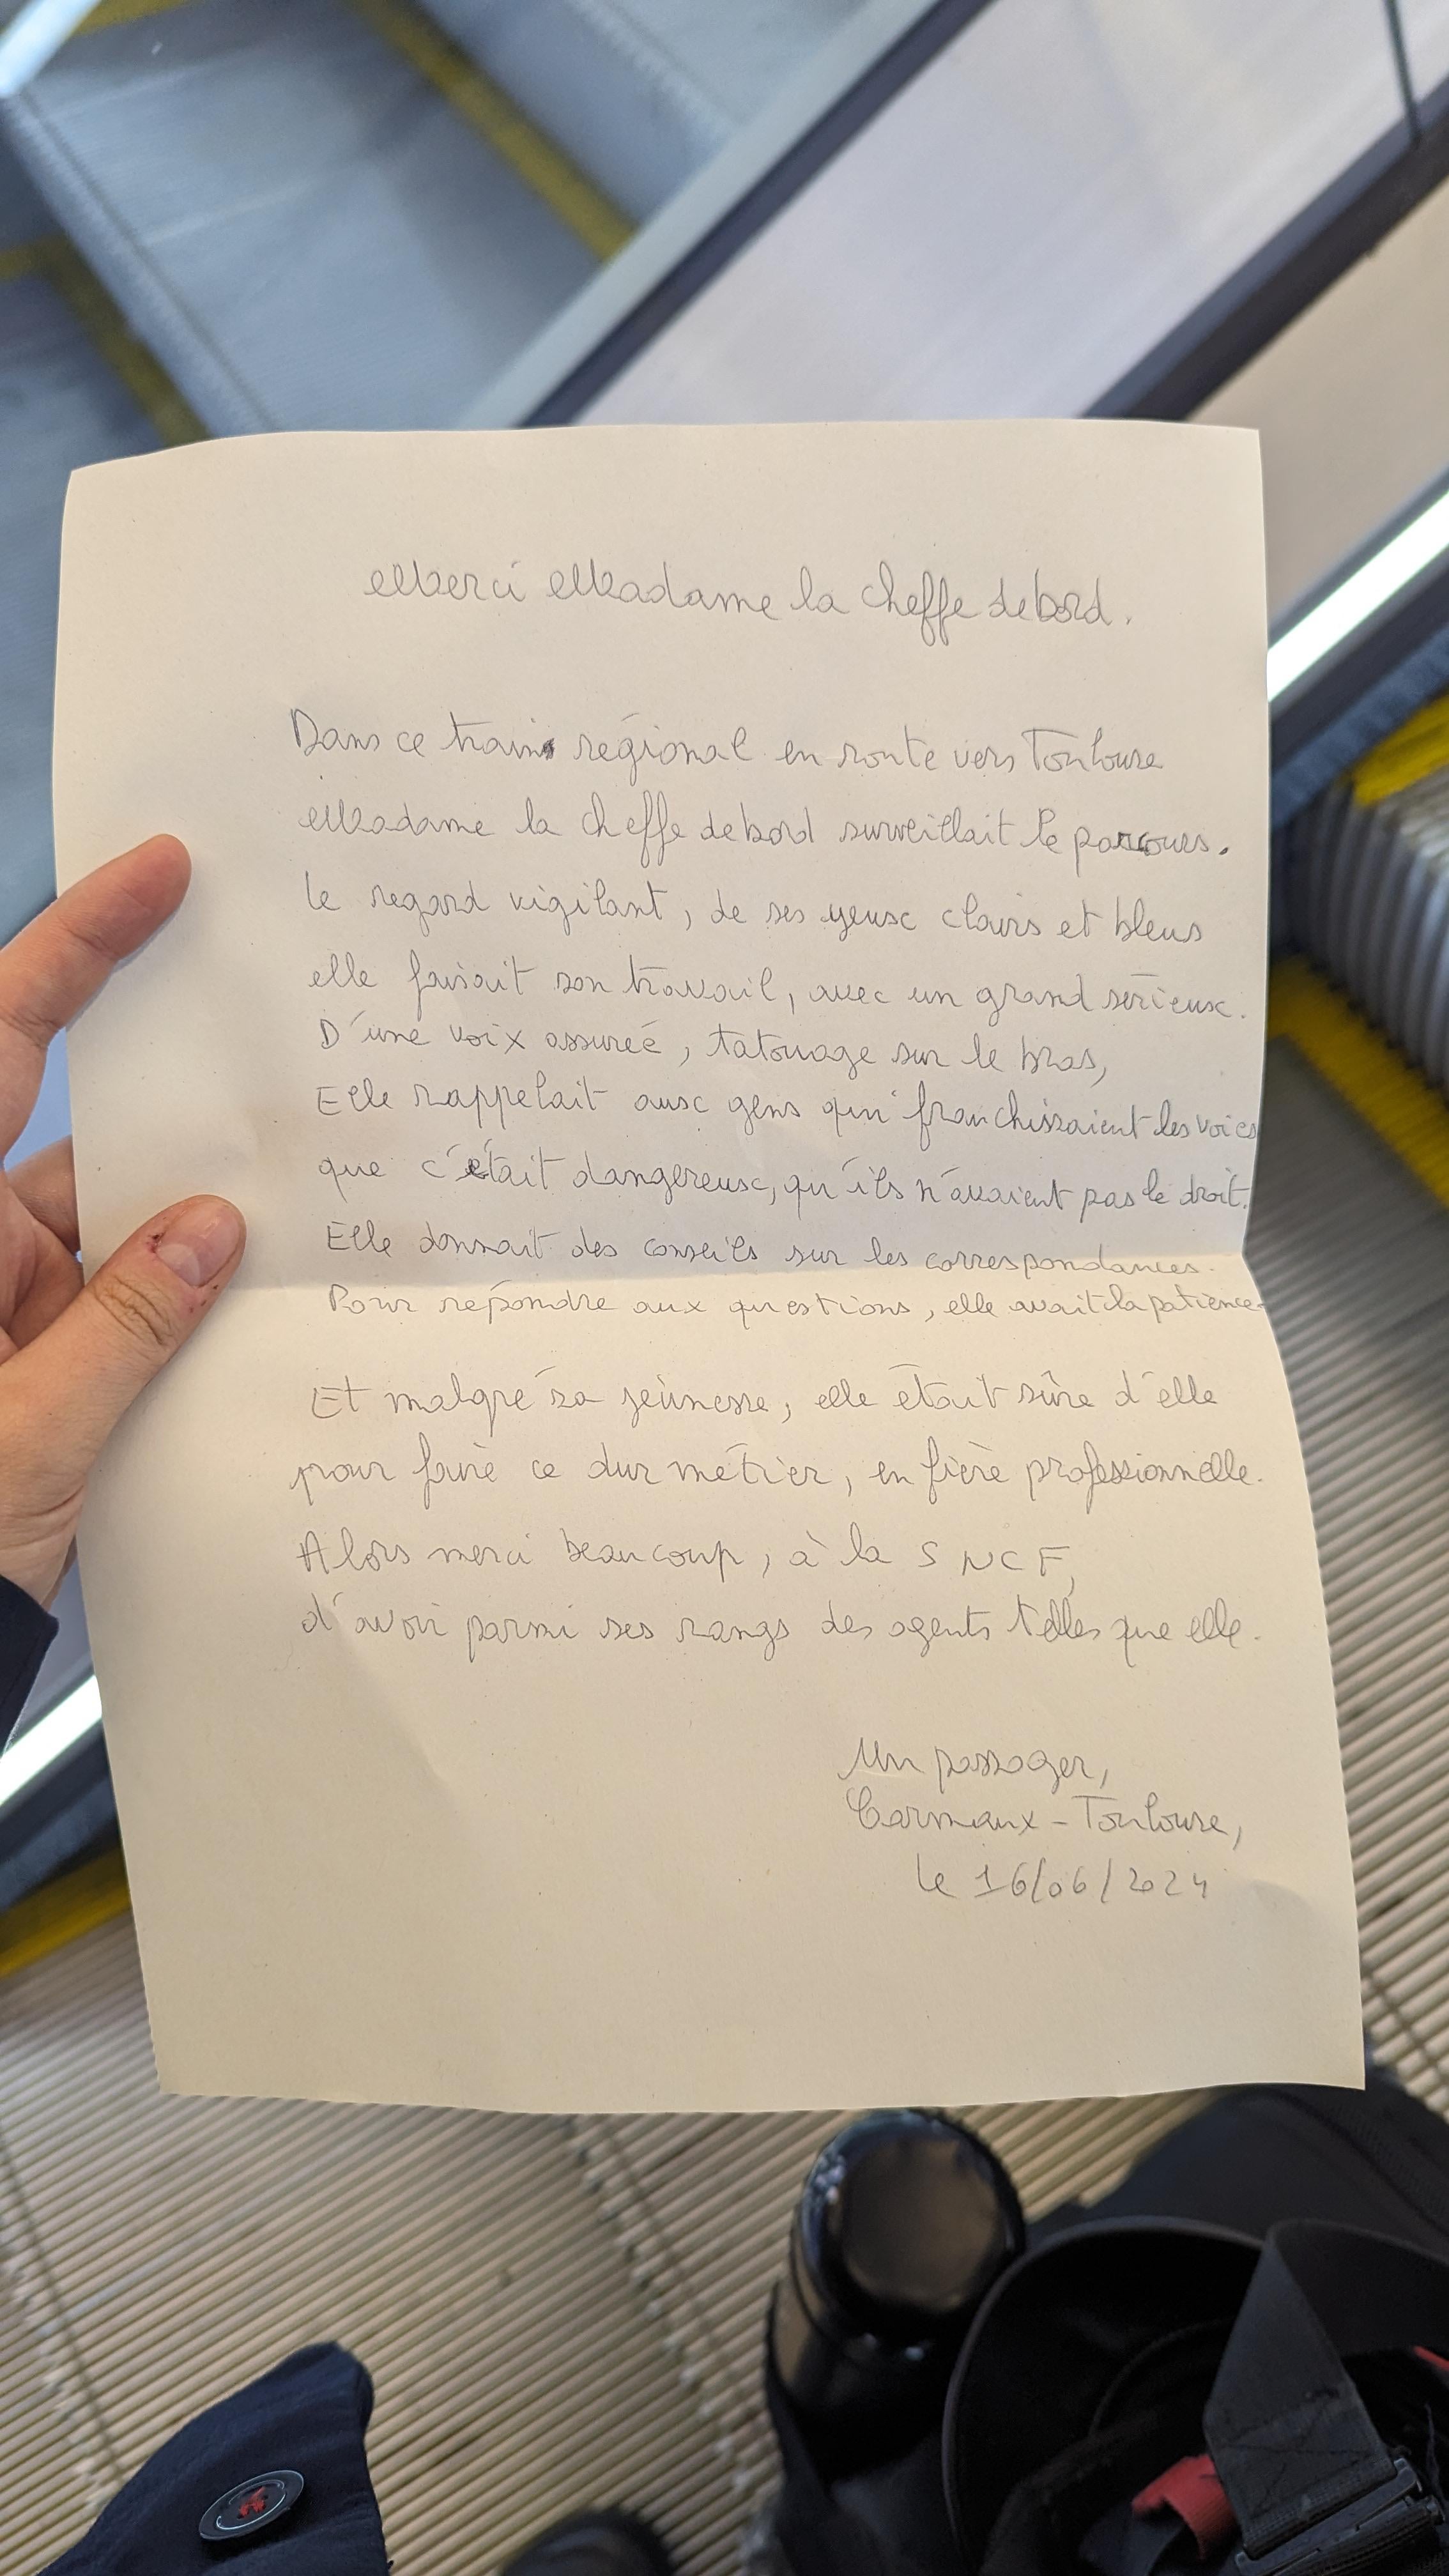 Merci Madame la cheffe de bord.
Dans ce train régional en route vers Toulouse
Madame la cheffe de bord surveillait le parcours.
le regard vigilant, de ses yeux clairs et bleus
elle faisait son travail, avec un grand sérieux.
D'une voix assurée, tatouage sur le bras,
Elle rappelait aux gens qui franchissaient les voies
que c'était dangereux, qu'ils n'avaient pas le droit.
Elle donnait des conseils sur les correspondances.
Pour répondre aux questions, elle avait la patience.
Et malgré sa jeunesse, elle était sûre d'elle
pour faire ce dur métier, en fière professionnelle.
Alors merci beaucoup, à la SNCF,
d'avoir parmi ses rangs des agents telles que elle.
Un passager,
Carmaux-Toulouse,
le 16/06/2024